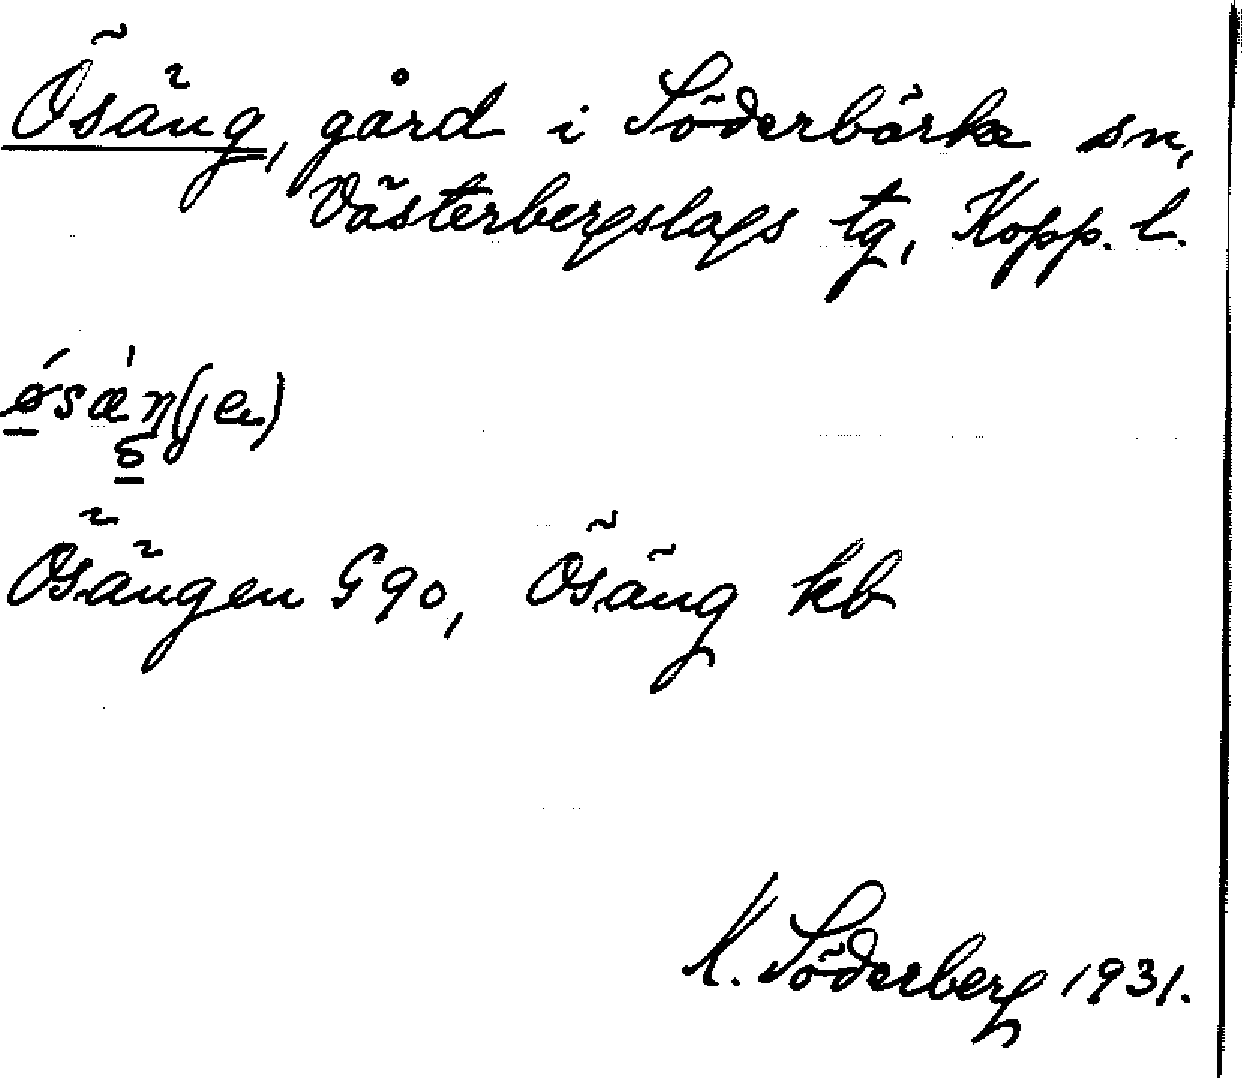 Ösäng, gård i Söderbärke sn,
Västerbergslags tg, Kopp. l.
Ösängen G 90, Ösäng kb
K. Söderberg 1931.